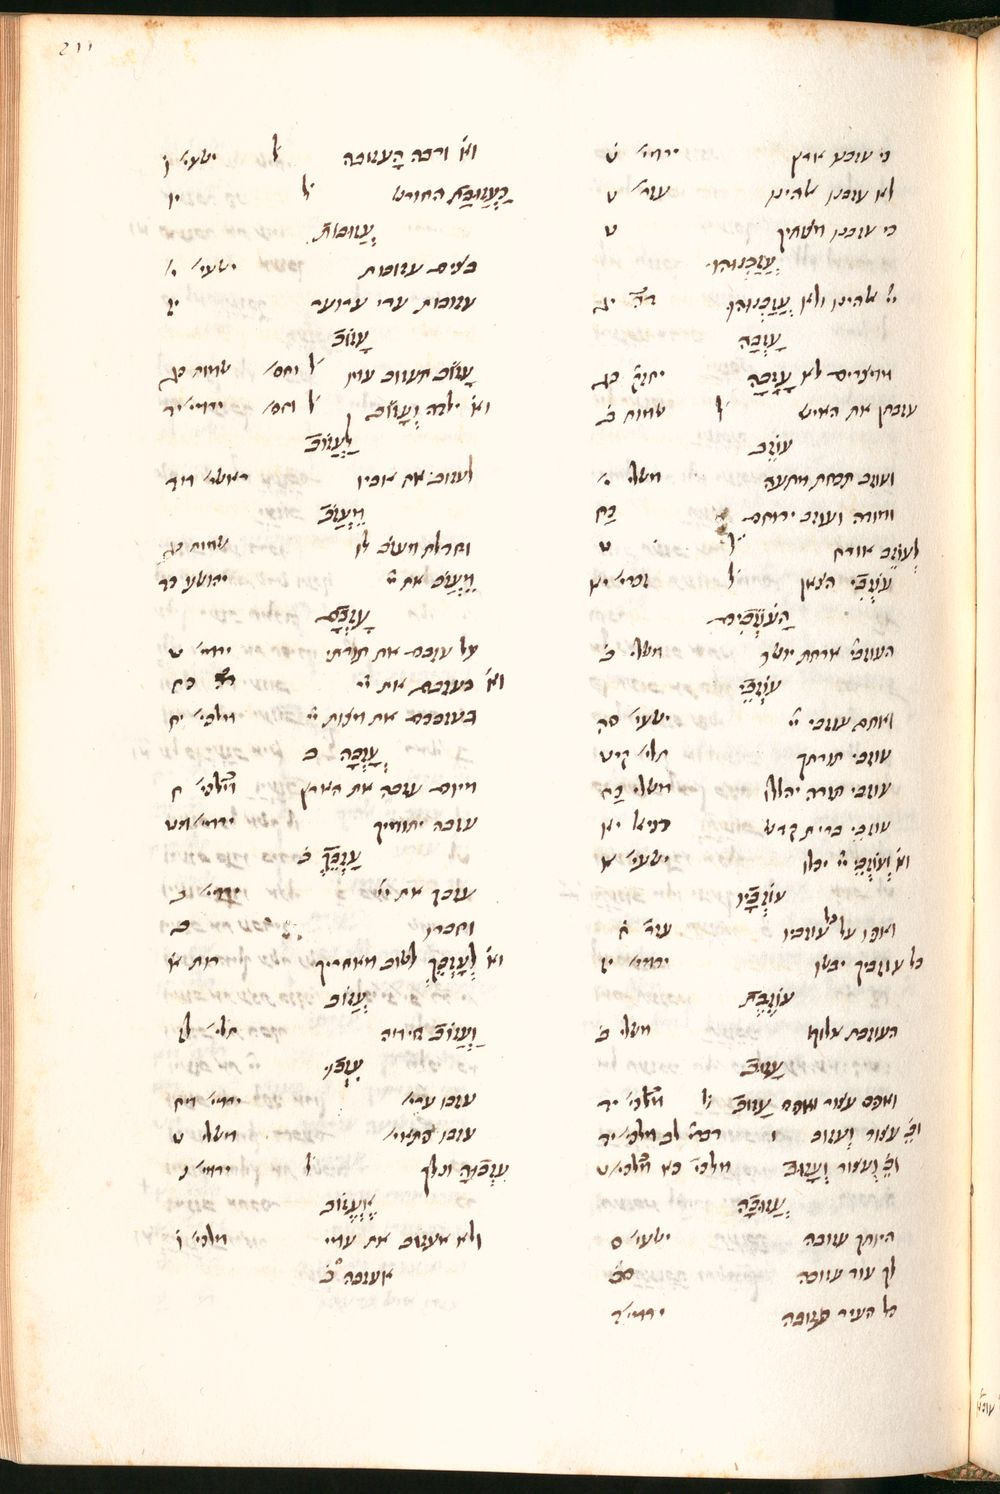 211
כי עזבנו ארץ ירמי׳ ט
לא עזבנו אלהינו עזר׳ ט
כי עזבנו מצותיך ט
עֲזַבְנֻהוּ
יי׳ אלהינו ולא עֲזַבְנֻהוּ דה֗ יג
עָזְבָה
מצרים לא עָזָבָה יחזק֗ כג
עזבתן את האיש ל׳ שמות ב֗
עוֹזֵב
ועוזב תכחת מתעה משלי י׳
ומודה ועוזב ירוחם כח
לְעוֹזֵב אורח ל׳ ט
עוֹזְבִי הצאן ל׳ זכרי׳ יא
הַעוֹזְבִים
העוזבי׳ ארחות יושר משלי ב֗
עוֹזְבֵי
ואתם עוזבי יי׳ ישעי׳ סה
עוזבי תורתך תלי׳ קיט
עוזבי תורה יהללו משלי כח
עוזבי ברית קדש דניאל יא
וא֗ וְעוֹזְבֵי יי׳ יכלו ישעי׳ א
עוֹזְבָיו
ואפו על כל עוזביו עזר֗ ח֗
כל עוזביך יבשו ירמי׳ יז
עוֹזֶבֶת
העוזבת אלוף משלי ב֗
עָזוּב
ואפס עצור ואפס עָזוּב ל׳ מלכי׳ יד
וב֗ עצור ועזוב ו דברי֗ לב מלכי׳ יד
וב֗ וְעצור וְעָזוּב מלכי֗ כא מלכי׳ ט
עֲזוּבָה
היותך עזובה ישעי׳ ס
לך עוד עזובה סב֗
כל העיר עזובה ירמי׳ ד
וא֗ ורבה הָעזובה ל׳ ישעי׳ ו֗
כַּעֲזוּבַת החורש ל׳ יז
עֲזוּבוֹת
כצים עזובות ישעי׳ י׳
עזובות ערי ערוער יז
עָזוֹב
עָזוֹב תעזוב עמו ל׳ וחס׳ שמות כג
וא֗ ילדה וְעָזוֹב ל׳ וחס׳ ירמי׳ יד
לַעֲזוֹב
לעזוב את אביו בראשי׳ מד
מֵעֲזוֹב
וחדלת מעזוב לו שמות כג
מֵעֲזוֹב את יי׳ יהושע כד
עָזְבָם
על עזבם את תורתי ירמי׳ ט
וא֗ כעזבם את יי׳ דה֗ כח
בעזבכם את מצות יי׳ מלכי׳ יח
עָזְבָה ב
מיום עזבה את הארץ מלכי׳ ח
עזבה יתומיך ירמי׳ מט
עָזְבֵךְ ב֗
עזבך את יי׳ ירמי׳ ב֗
ב
וא֗ לְעָזְבֵךְ לשוב מאחריך רות א
וַעֲזוֹב
וַעֲזוֹב חימה תלי׳ לז
עִזְבוּ
עזבו ערי׳ ירמי׳ מח
עזבו פתאי׳ משלי ט
עִזְבוּהָ ונלך ל׳ ירמי׳ נ
אֶעֱזוֹב
ולא אעזוב את עמי מלכי׳ ו֗
אעזבה ב֗